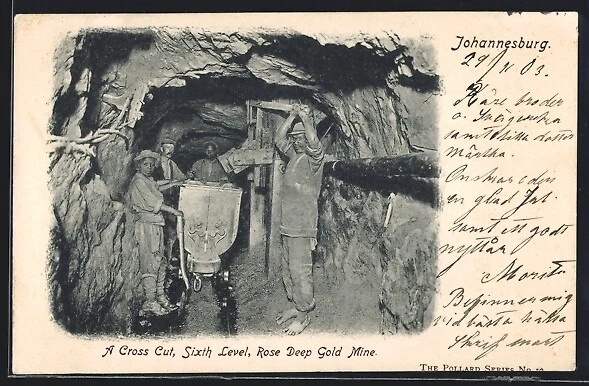 Johannesburg.
29/11 03.
Käre broder
o. Svägerska
samt lilla dotter
Märtha.
Önskar eder
en glad Jul
samt ett godt
nyttår
Moritz
Befinner mig
vid bästa hälsa
Skrif snart
A Cross Cut, Sixth Level, Rose Deep Gold Mine.
The Pollard Series No.